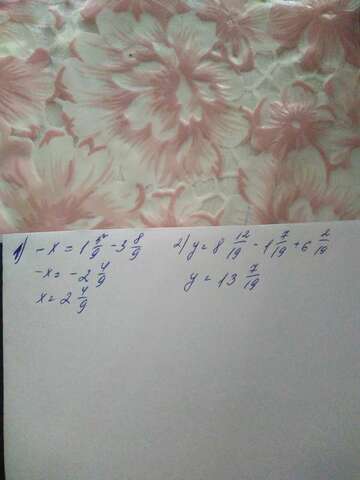 1) -x = 1 4/9 - 3 8/9
-x = -2 4/9
x = 2 4/9
2) y = 8 12/19 - 1 7/19 + 6 2/19
y = 13 7/19